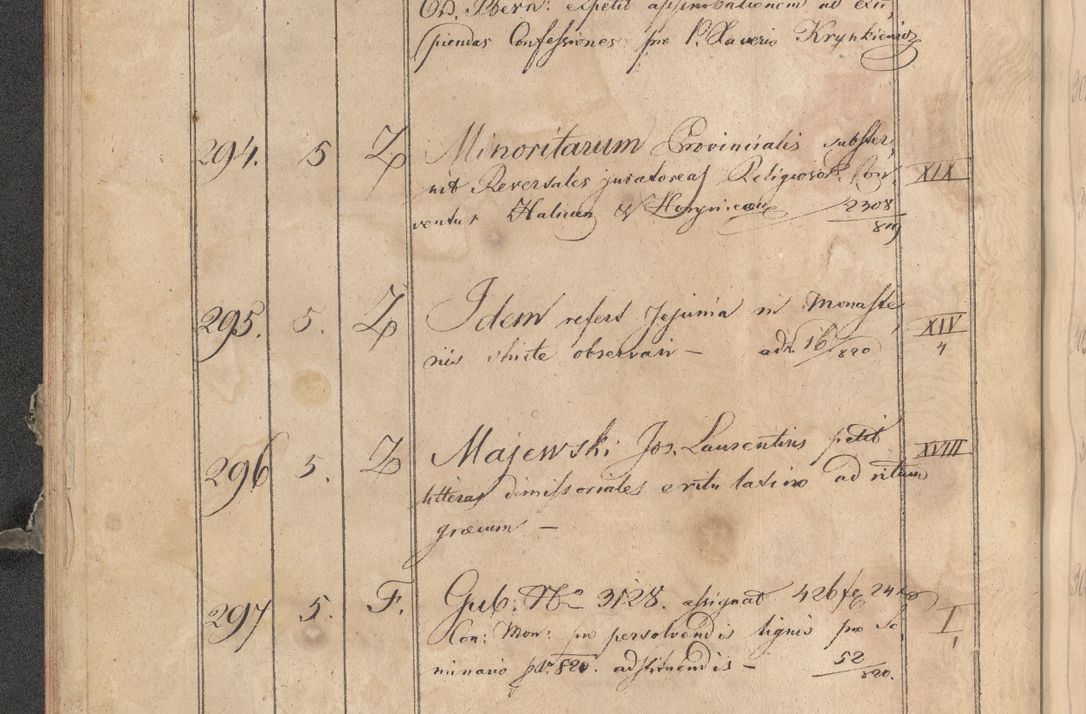 Ord. Bern: expetit approbationem ad exci,
piendas Confessiones pro P. Xaverio Krynkiewicz
294. 5 Z Minoritarum Provincialis subster,
nit Reversales juratorias Religiosor. Con, XIX
ventus Halicien & 2308/819
295. 5. Z Idem refert Jejunia in Monaste,
riis stricte observari – adN. 16/820 XIV/4
296 5. Z Majewski Jos. Laurentius petit XVIII
litteras dimissoriales e ritu latino ad ritum
græcum –
297 5. F. Gub. No 3128. assignat 426 fr 24 xr
Con: Mon: pro persolvendis lignis pro Se, I/1
minario pr. 820. adstituendis – 52/820.